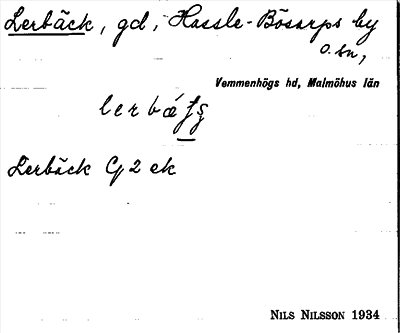 Lerbäck, gd, Hassle-Bösarps by
o. sn,
Vemmenhögs hd, Malmöhus län
Lerbäck G 2 ek
NILS NILSSON 1934